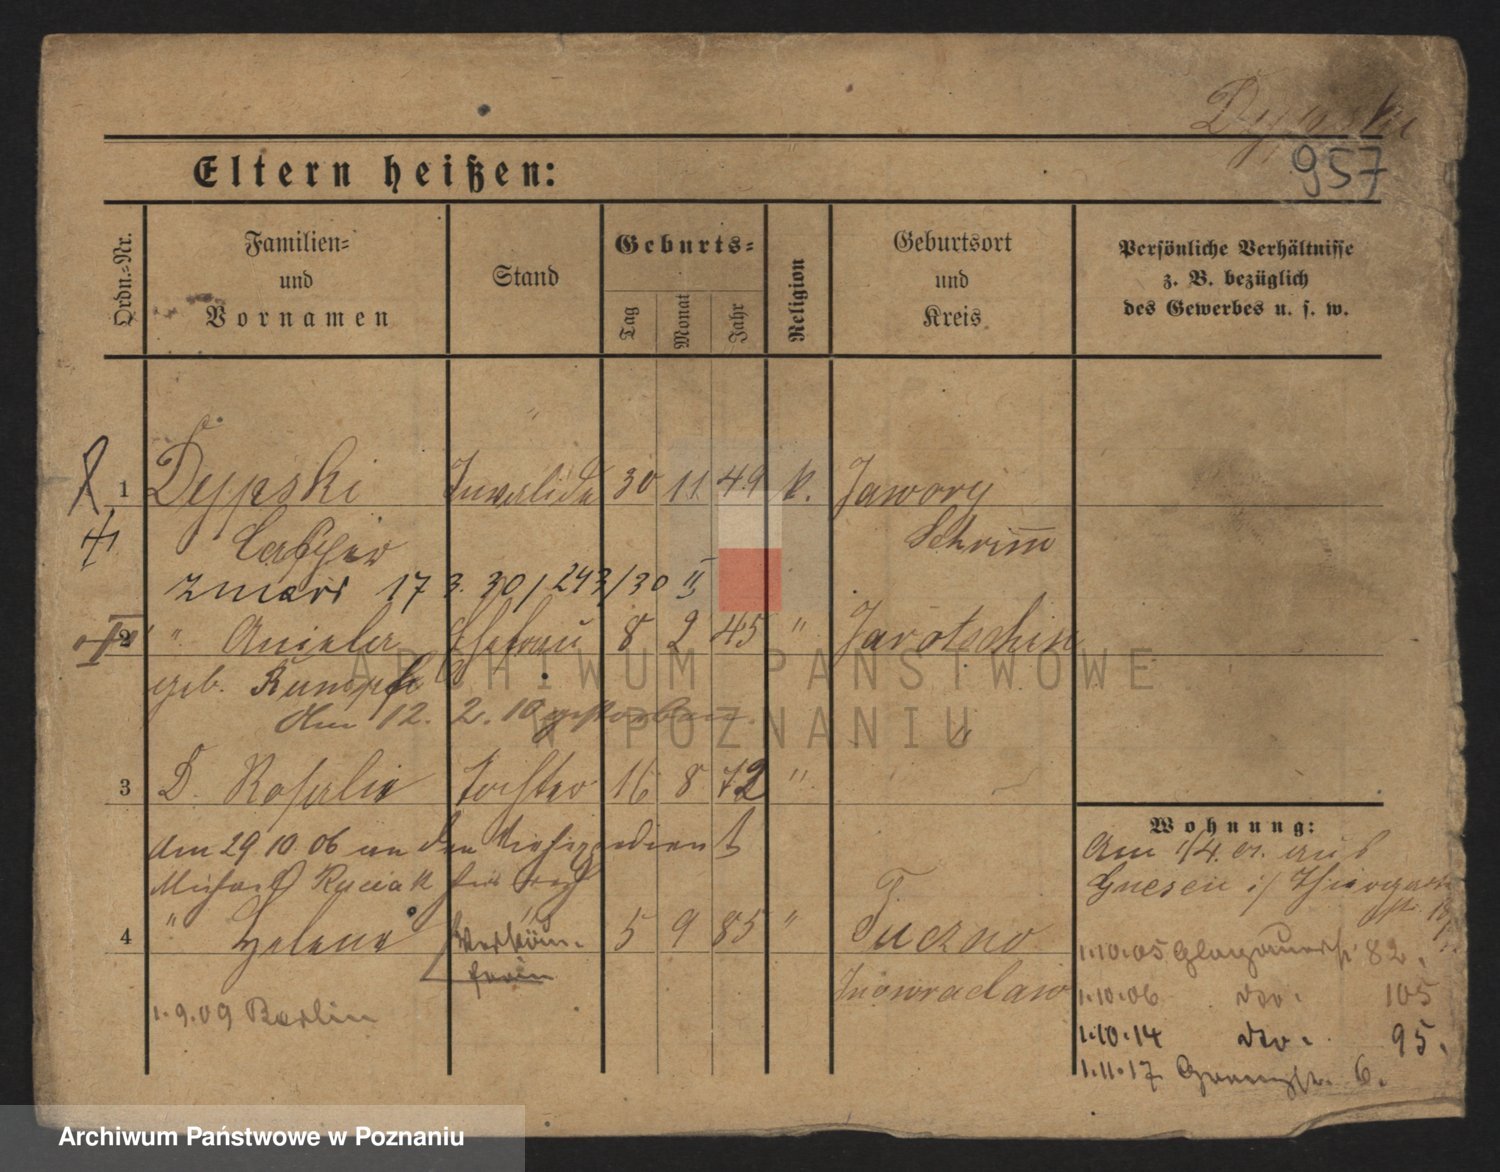 Dypski
957
Eltern heißen:
Ordn.-Nr.
Familien- und Vornamen
Stand
Geburts-
Tag
Monat
Jahr
Religion
Geburtsort und Kreis
Persönliche Verhältnisse z. B. bezüglich des Gewerbes u. s. w.
1 Dypski Invalide 30 11 49 k. Jawory
Casper Schrimm
zmarł 17 3. 30 / 243/30 II
2 " Aniela Ehefrau 8 2 45 " Jarotschin
geb.
Am 12. 2. 10 gestorben.
"
3 D. Rosalie Tochter 16 8 72 "
Wohnung:
am 29 10 06 an den
Michael
Am 1/4. cr. aus
Gnesen
4 " Helene 5 9 85 " Tuczno
Inowraclaw
1.9.09 Berlin
1.10.05 Glogauerstr 82.
1.10.06 dto. 105
1.10.14 dto. 95.
1.11.17 6.
ARCHIWUM PAŃSTWOWE
W POZNANIU
Archiwum Państwowe w Poznaniu